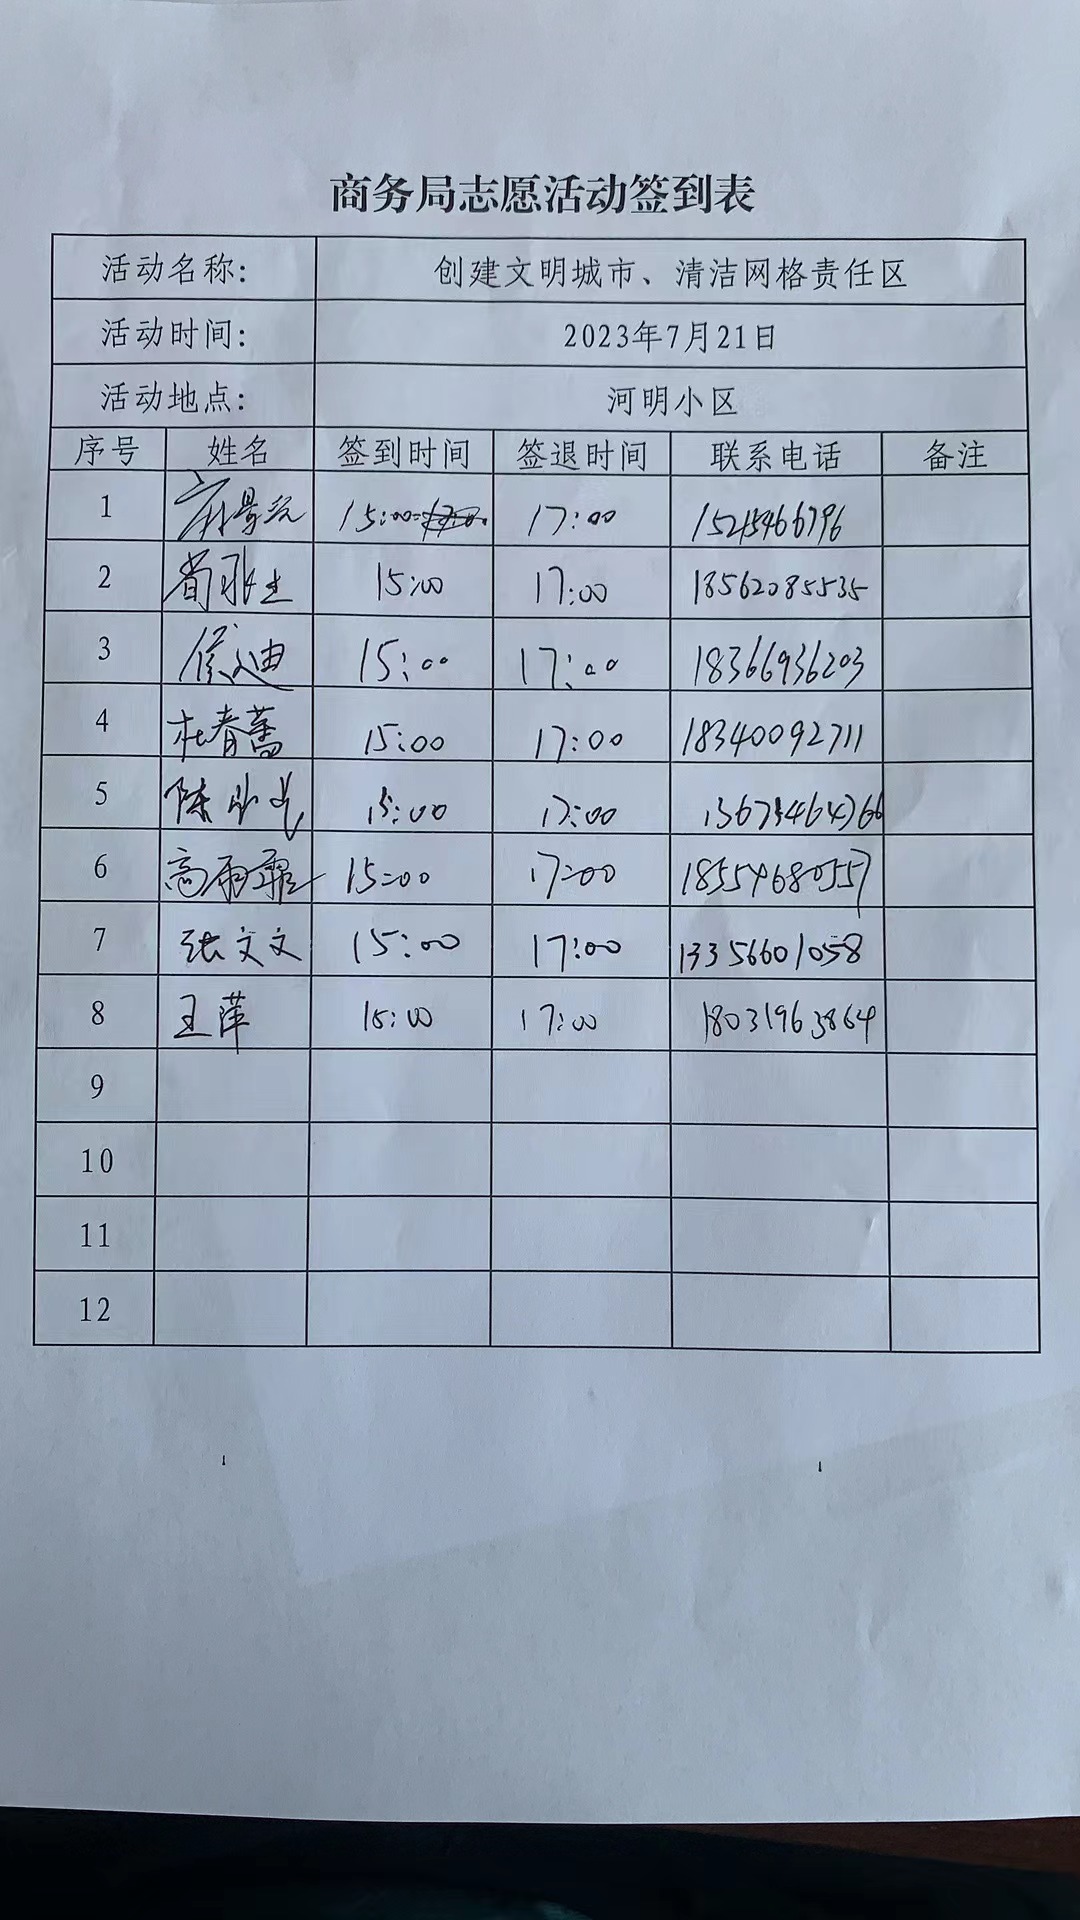 商务局志愿活动签到表
活动名称: 创建文明城市、清洁网格责任区
活动时间: 2023年7月21日
活动地点: 河明小区
序号 姓名 签到时间 签退时间 联系电话 备注
1 15:00 17:00
2 15:00 17:00 18562085535
3 侯文迪 15:00 17:00 18366936203
4 杜春蕾 15:00 17:00 18340092711
5 15:00 17:00
6 高雨霏 15:00 17:00 18554680557
7 张文文 15:00 17:00 13356601058
8 王萍 15:00 17:00 18031963864
9
10
11
12